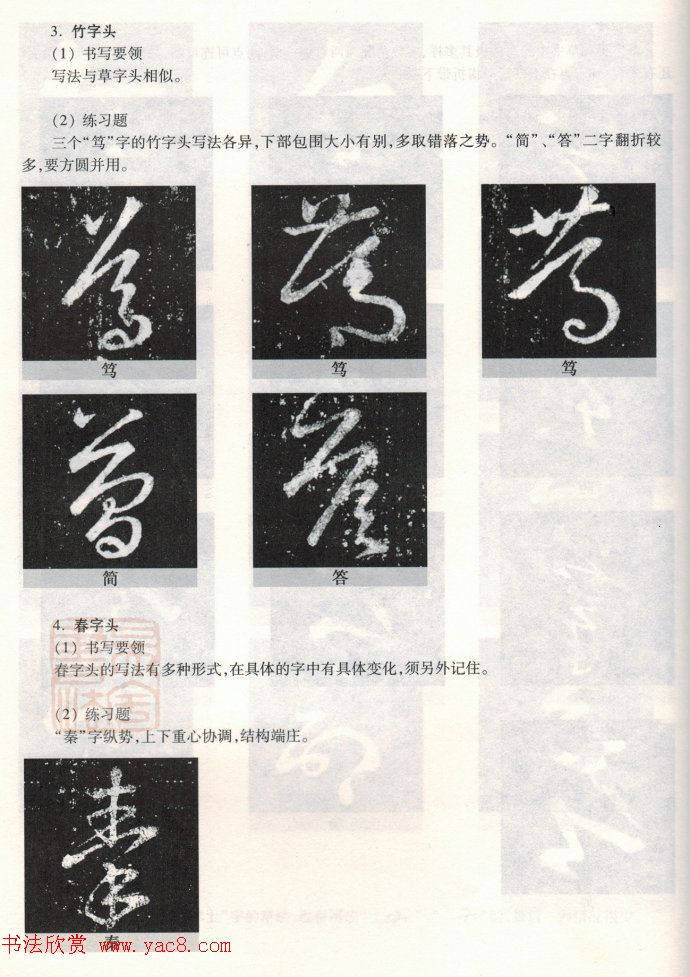 3. 竹字头
(1) 书写要领
写法与草字头相似。
(2) 练习题
三个“笃”字的竹字头写法各异,下部包围大小有别,多取错落之势。“简”、“答”二字翻折较
多,要方圆并用。
笃 笃 笃
简 答
4. 春字头
(1) 书写要领
春字头的写法有多种形式,在具体的字中有具体变化,须另外记住。
(2) 练习题
“秦”字纵势,上下重心协调,结构端庄。
秦
书法欣赏 www.yac8.com